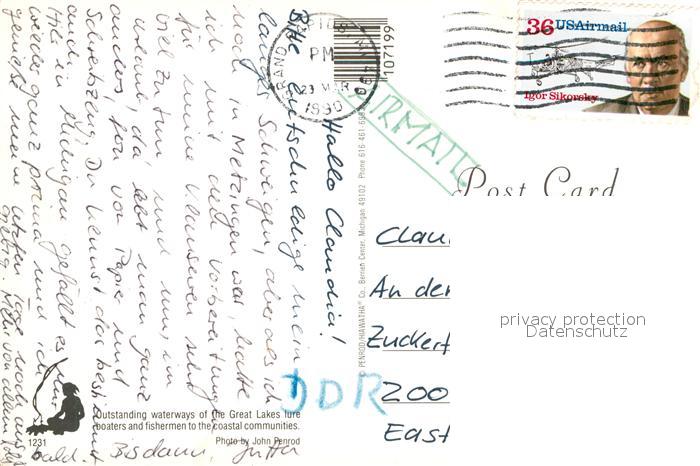 36 USAirmail
Igor Sikorsky
GRAND RAPIDS MI
PM
23 MAR
1990
107199
AIRMAIL
Post Card
Hallo Claudia!
Bitte entschuldige mein
langes Schweigen, aber als ich
noch in Metzingen war, hatte
ich mit den Vorbereitungen
für meine Klausuren sehr
viel zu tun und nun, im
Urlaub, da lebt man ganz
anders fern von Papier und
Schreibzeug. Du kennst das bestimmt
auch.
Hier in Michigan gefällt es mir
wieder ganz prima und ich
genieße meine letzten Tage noch aus
Mehr von allem
bald. Bis dann, Jutta
© PENROD/HIAWATHA Co., Berrien Center, Michigan 49102 Phone 616-461-69
Clau
An der
Zuckerf
DDR 200
East
privacy protection
Datenschutz
Outstanding waterways of the Great Lakes lure
boaters and fishermen to the coastal communities.
1231 Photo by John Penrod